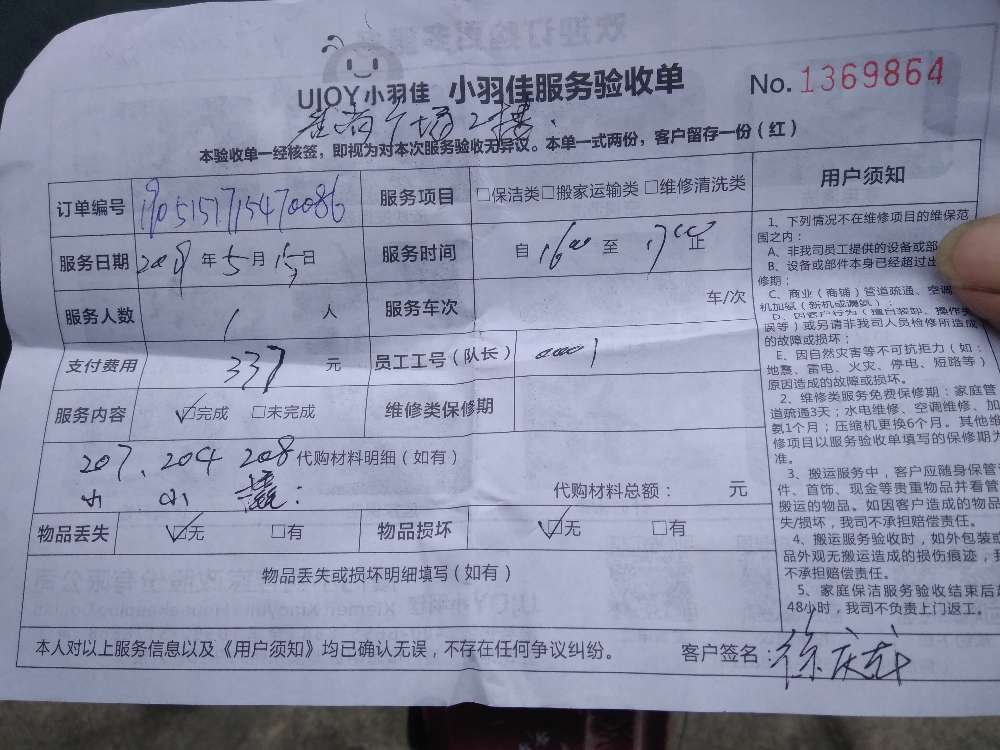 UJOY小羽佳 小羽佳服务验收单 No.1369864
广场2楼
本验收单一经核签，即视为对本次服务验收无异议。本单一式两份，客户留存一份（红）
订单编号 服务项目 □保洁类□搬家运输类□维修清洗类
服务日期 2019年5月15日 服务时间 自1600至1700止
服务人数 1人 服务车次 车/次
支付费用 337元 员工工号（队长） 00001
服务内容 ☑完成 □未完成 维修类保修期
207、204 208 代购材料明细（如有）
小 小
代购材料总额： 元
物品丢失 ☑无 □有 物品损坏 ☑无 □有
物品丢失或损坏明细填写（如有）
本人对以上服务信息以及《用户须知》均已确认无误，不存在任何争议纠纷。 客户签名：徐庆
用户须知
1、下列情况不在维修项目的维保范
围之内：
A、非我司员工提供的设备或部
B、设备或部件本身已经超过出
修期；
C、商业（商铺）管道疏通、空调
机加氨（新机或漏氨）；
误等）或另请非我司人员检修所造成
的故障或损坏；
E、因自然灾害等不可抗拒力（如：
地震、雷电、火灾、停电、短路等）
原因造成的故障或损坏。
2、维修类服务免费保修期：家庭管
道疏通3天；水电维修、空调维修、加
氨1个月；压缩机更换6个月。其他维
修项目以服务验收单填写的保修期为
准。
3、搬运服务中，客户应随身保管
件、首饰、现金等贵重物品并看管
搬运的物品。如因客户造成的物品
失/损坏，我司不承担赔偿责任。
4、搬运服务验收时，如外包装或
品外观无搬运造成的损伤痕迹，我
不承担赔偿责任。
5、家庭保洁服务验收结束后超
48小时，我司不负责上门返工。